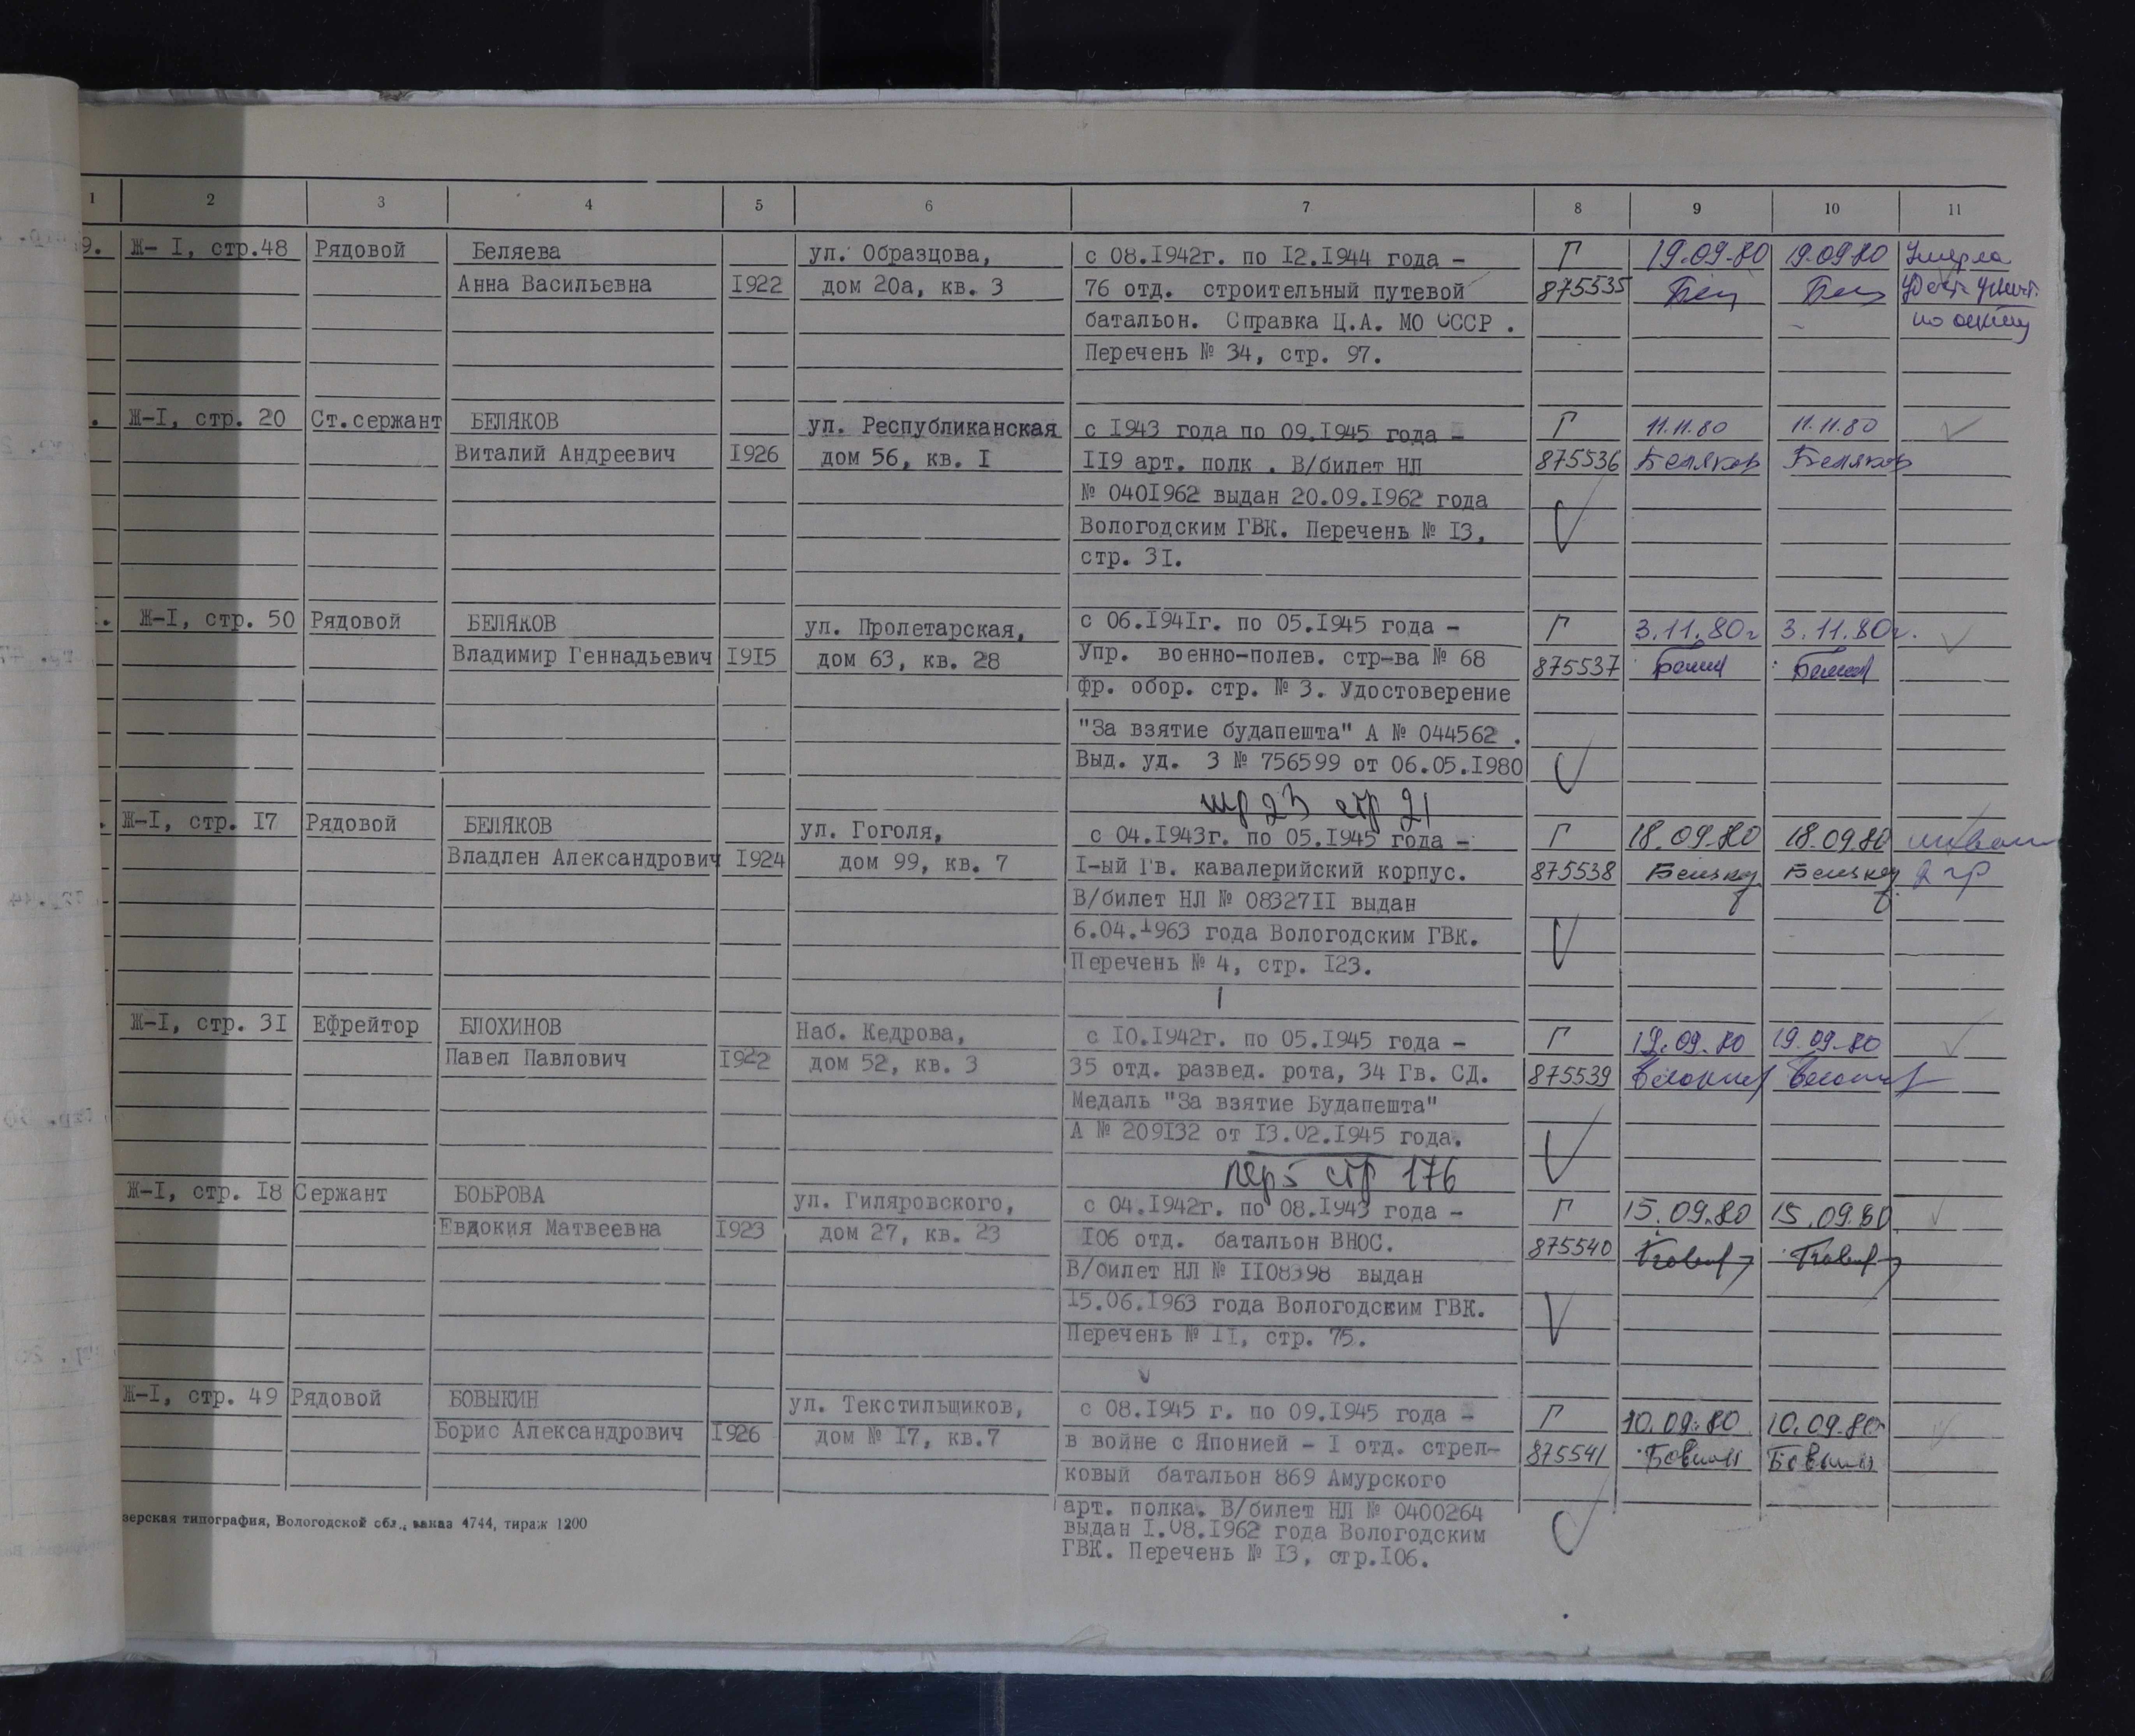 1 2 3 4 5 6 7 8 9 10 11
9. Ж- I, стр.48 Рядовой Беляева ул. Образцова, с 08.I942г. по I2.I944 года - Г 19.09.80 19.09.80 Умерла
Анна Васильевна I922 дом 20а, кв. 3 76 отд. строительный путевой 875535
батальон. Справка Ц.А. МО СССР . по акту
Перечень № 34, стр. 97.
. Ж-I, стр. 20 Ст.сержант БЕЛЯКОВ ул. Республиканская с I943 года по 09.I945 года - Г 11.11.80 11.11.80
Виталий Андреевич I926 дом 56, кв. I II9 арт. полк . В/билет НЛ 875536 Беляков Беляков
№ 040I962 выдан 20.09.I962 года
Вологодским ГВК. Перечень № I3,
стр. 3I.
. Ж-I, стр. 50 Рядовой БЕЛЯКОВ ул. Пролетарская, с 06.I94Iг. по 05.I945 года - Г 3.11.80г 3.11.80г.
Владимир Геннадьевич I9I5 дом 63, кв. 28 Упр. военно-полев. стр-ва № 68 875537
фр. обор. стр. № 3. Удостоверение
"За взятие будапешта" А № 044562 .
Выд. уд. З № 756599 от 06.05.I980
стр 21
. Ж-I, стр. I7 Рядовой БЕЛЯКОВ ул. Гоголя, с 04.I943г. по 05.I945 года - Г 18.09.80 18.09.80
Владлен Александрович I924 дом 99, кв. 7 I-ый Гв. кавалерийский корпус. 875538 2 гр
В/билет НЛ № 08327II выдан
6.04.I963 года Вологодским ГВК.
Перечень № 4, стр. I23.
Ж-I, стр. 3I Ефрейтор БЛОХИНОВ Наб. Кедрова, с I0.I942г. по 05.I945 года - Г 19.09.80 19.09.80
Павел Павлович I922 дом 52, кв. 3 35 отд. развед. рота, 34 Гв. СД. 875539
Медаль "За взятие Будапешта"
А № 209I32 от I3.02.I945 года.
пер 5 стр 176
Ж-I, стр. I8 Сержант БОБРОВА ул. Гиляровского, с 04.I942г. по 08.I943 года - Г 15.09.80 15.09.80
Евдокия Матвеевна I923 дом 27, кв. 23 I06 отд. батальон ВНОС. 875540
В/билет НЛ № II08398 выдан
I5.06.I963 года Вологодским ГВК.
Перечень № II, стр. 75.
Ж-I, стр. 49 Рядовой БОВЫКИН ул. Текстильщиков, с 08.I945 г. по 09.I945 года - Г 10.09.80 10.09.80
Борис Александрович I926 дом № I7, кв.7 в войне с Японией - I отд. стрел- 875541
ковый батальон 869 Амурского
арт. полка. В/билет НЛ № 0400264
выдан I.08.I962 года Вологодским
ГВК. Перечень № I3, стр.I06.
зерская типография, Вологодской обл., заказ 4744, тираж 1200